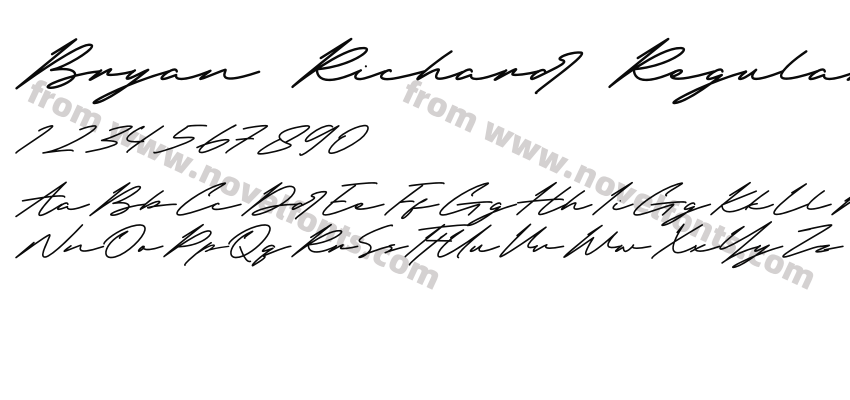 Bryan Richard Regular
1234567890
Aa Bb Cc Dd Ee Ff Gg Hh Ii Gg Kk Ll
Nn Oo Pp Qq Rr Ss Tt Uu Vv Ww Xx Yy Zz
from www.novelfonts.com
from www.novelfonts.com